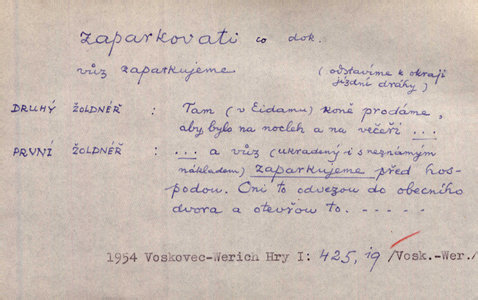 zaparkovati co dok.
vůz zaparkujeme (odstavíme k okraji
jízdní dráhy)
DRUHÝ ŽOLDNÉŘ : Tam (v Eidamu) koně prodáme,
aby bylo na nocleh a na večeři ...
PRVNÍ ŽOLDNÉŘ : ... a vůz (ukradený i s neznámým
nákladem) zaparkujeme před hos-
podou. Oni to odvezou do obecního
dvora a otevřou to. - - - - -
1954 Voskovec-Werich Hry I: 425, 19 /Vosk.-Wer./